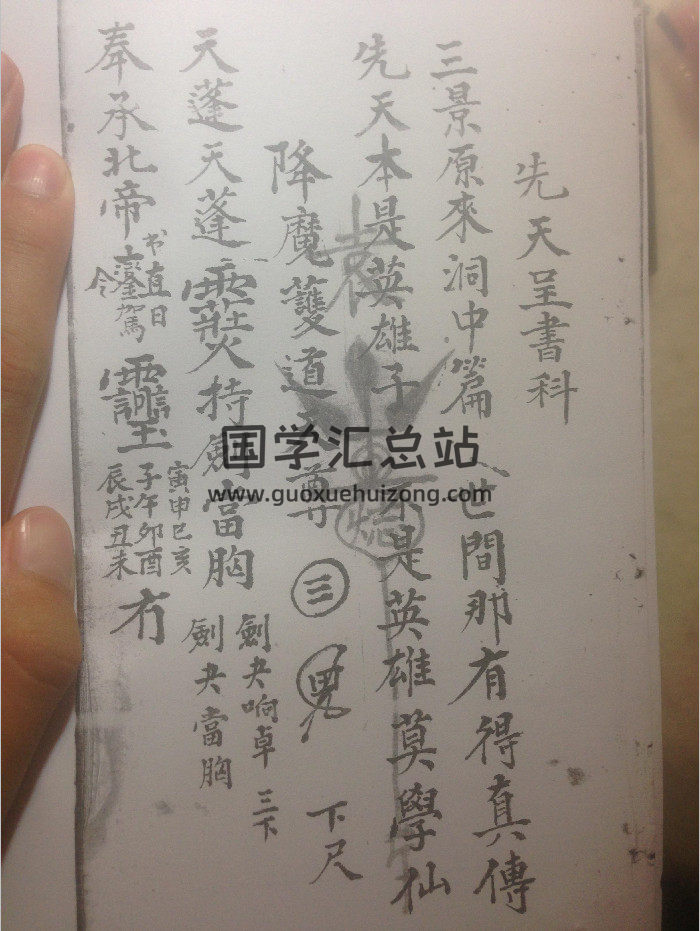 先天呈書科
三景原來洞中篇 世間那有得真傳
先天本是英雄子 不是英雄莫學仙
降魔護道天尊 三 下尺
天蓬天蓬 持劍當胸 劍夬响卓三下 劍夬當胸
奉承北帝 书直日 令 鑾駕 寅申巳亥 子午卯酉 辰戌丑未 冇
国学汇总站
www.guoxuehuizong.com